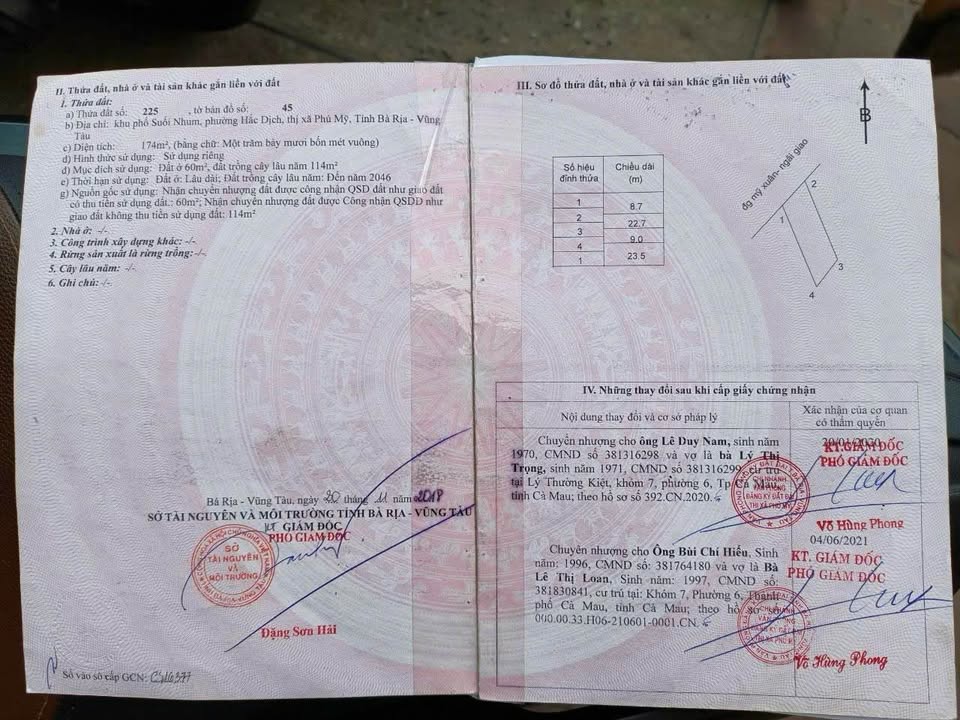 II. Thửa đất, nhà ở và tài sản khác gắn liền với đất
1. Thửa đất:
a) Thửa đất số: 225 , tờ bản đồ số: 45
b) Địa chỉ: khu phố Suối Nhum, phường Hắc Dịch, thị xã Phú Mỹ, Tỉnh Bà Rịa - Vũng
Tàu
c) Diện tích: 174m², (bằng chữ: Một trăm bảy mươi bốn mét vuông)
d) Hình thức sử dụng: Sử dụng riêng
đ) Mục đích sử dụng: Đất ở 60m², đất trồng cây lâu năm 114m²
e) Thời hạn sử dụng: Đất ở: Lâu dài; Đất trồng cây lâu năm: Đến năm 2046
g) Nguồn gốc sử dụng: Nhận chuyển nhượng đất được công nhận QSD đất như giao đất
có thu tiền sử dụng đất.: 60m²; Nhận chuyển nhượng đất được Công nhận QSDD như
giao đất không thu tiền sử dụng đất: 114m²
2. Nhà ở: -/-
3. Công trình xây dựng khác: -/-
4. Rừng sản xuất là rừng trồng: -/-
5. Cây lâu năm: -/-
6. Ghi chú: -/-
Bà Rịa - Vũng Tàu, ngày 20 tháng 11 năm 2018
SỞ TÀI NGUYÊN VÀ MÔI TRƯỜNG TỈNH BÀ RỊA - VŨNG TÀU
KT GIÁM ĐỐC
PHÓ GIÁM ĐỐC
SỞ
TÀI NGUYÊN
VÀ
MÔI TRƯỜNG
Đặng Sơn Hải
Số vào sổ cấp GCN:
III. Sơ đồ thửa đất, nhà ở và tài sản khác gắn liền với đất
B
Số hiệu đỉnh thửa Chiều dài (m)
1
8.7
2
22.7
3
9.0
4
23.5
1
đg mỹ xuân-ngãi giao
1
2
3
4
IV. Những thay đổi sau khi cấp giấy chứng nhận
Nội dung thay đổi và cơ sở pháp lý
Xác nhận của cơ quan
có thẩm quyền
Chuyển nhượng cho ông Lê Duy Nam, sinh năm
1970, CMND số 381316298 và vợ là bà Lý Thị
Trọng, sinh năm 1971, CMND số 381316299 cư trú
tại Lý Thường Kiệt, khóm 7, phường 6, Tp Cà Mau,
tỉnh Cà Mau; theo hồ sơ số 392.CN.2020.
20/01/2020
KT.GIÁM ĐỐC
PHÓ GIÁM ĐỐC
CHI NHÁNH
VĂN PHÒNG
ĐĂNG KÝ ĐẤT ĐAI
THỊ XÃ PHÚ MỸ
Võ Hùng Phong
Chuyển nhượng cho Ông Bùi Chí Hiếu, Sinh
năm: 1996, CMND số: 381764180 và vợ là Bà
Lê Thị Loan, Sinh năm: 1997, CMND số:
381830841, cư trú tại: Khóm 7, Phường 6, Thành
phố Cà Mau, tỉnh Cà Mau; theo hồ sơ số
000.00.33.H06-210601-0001.CN.
04/06/2021
KT. GIÁM ĐỐC
PHÓ GIÁM ĐỐC
CHI NHÁNH
VĂN PHÒNG
ĐĂNG KÝ ĐẤT ĐAI
THỊ XÃ PHÚ MỸ
Võ Hùng Phong